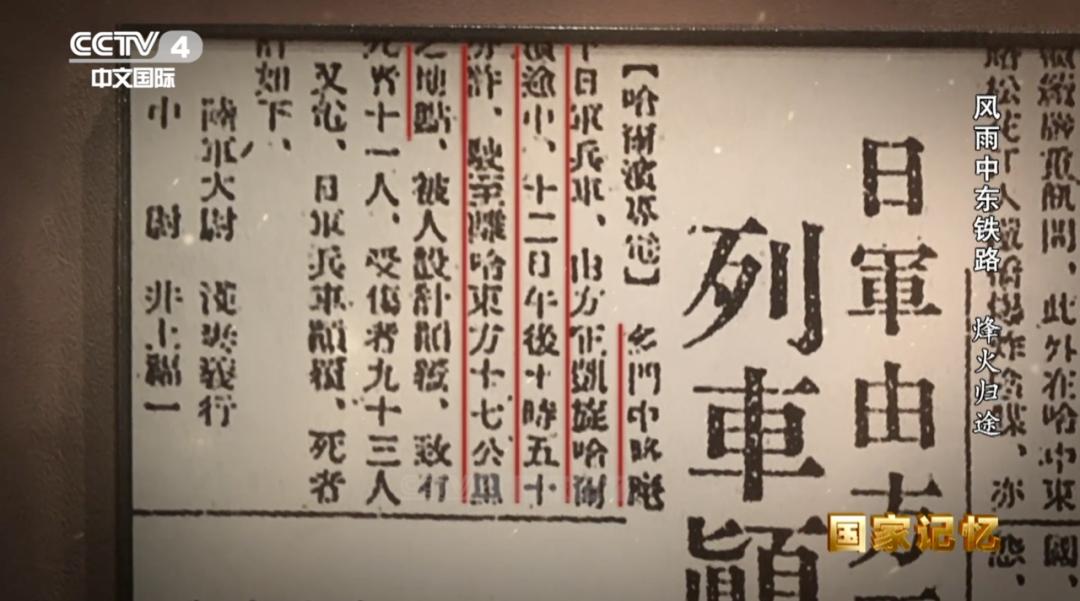 CCTV 4
中文国际
风雨中东铁路 烽火归途
此外在哈
日軍由方
列車顛
【哈爾濱專電】 多門中將麾
下日軍兵車、由方正凱旋哈爾
濱途中、十二日午後十時五十
分許、駛至離哈東方十七公里
之地點、被人設計顛覆、致有
死者十一人、受傷者九十三人
日軍兵車顛覆、死者
計如下、
陸軍大尉 義行
中 尉 井上福一
国家记忆